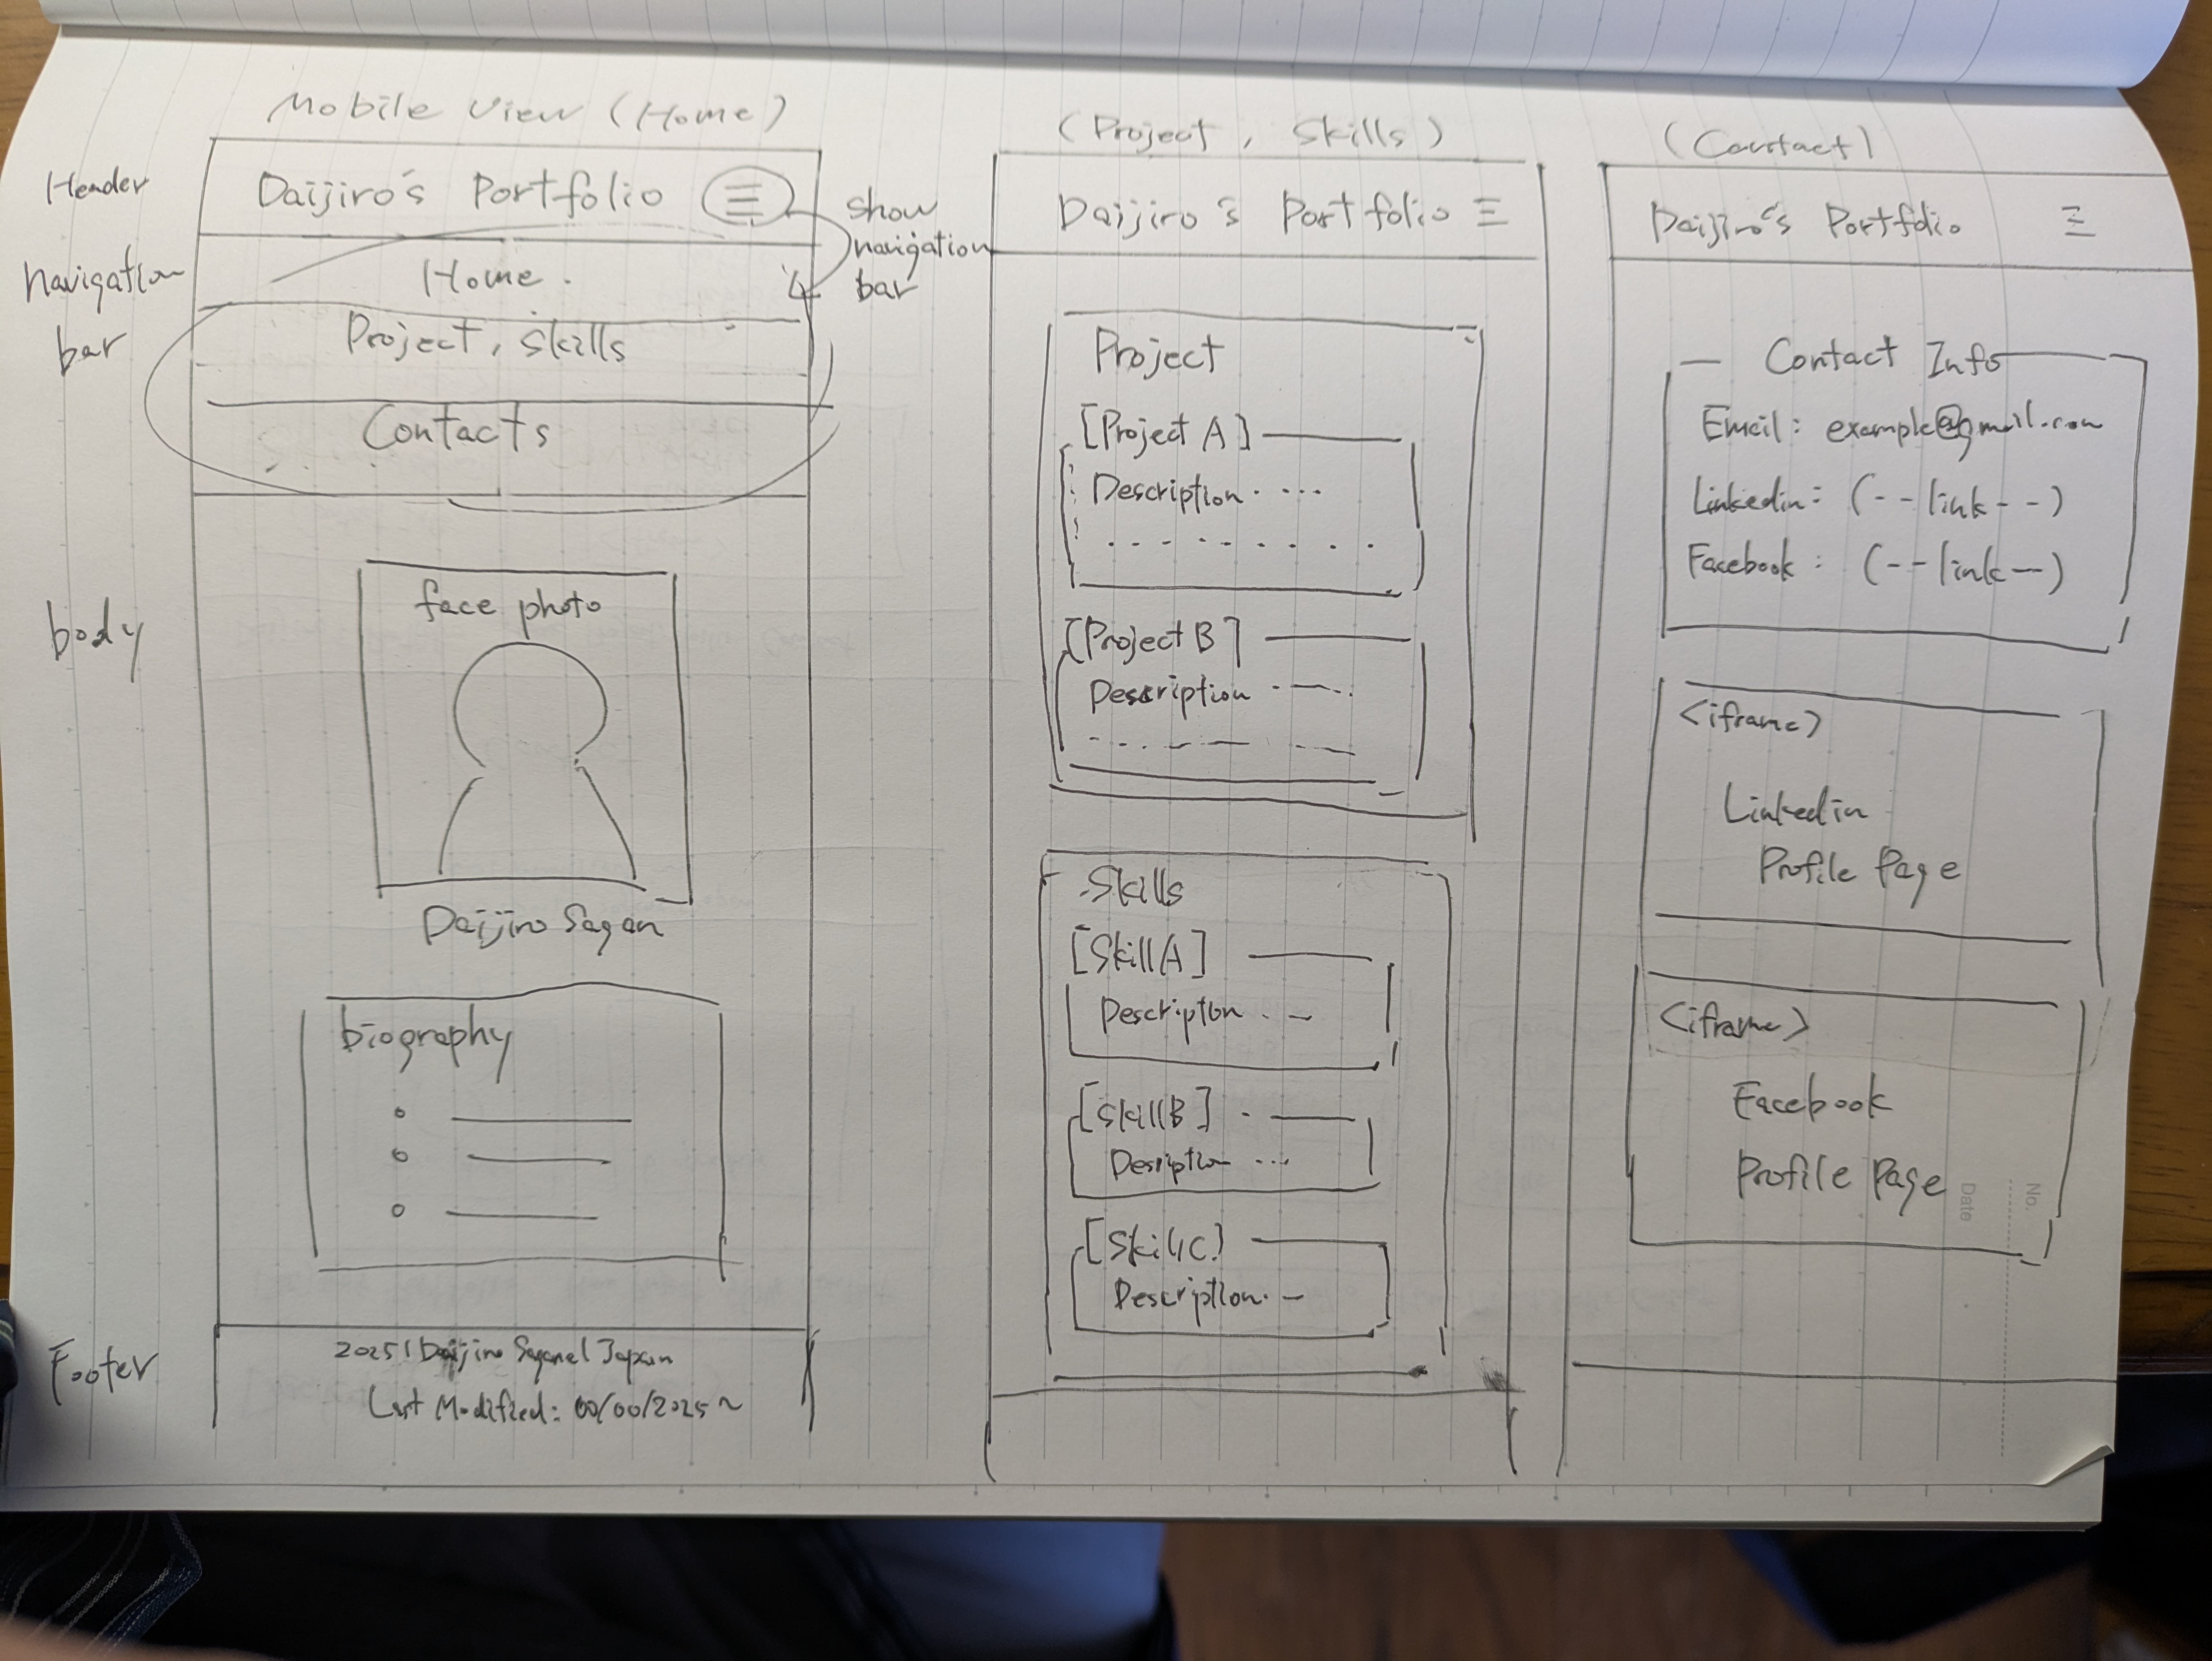 Mobile View (Home)
Header
Daijiro's Portfolio
show
navigation
bar
navigation
bar
Home.
Project, Skills
Contacts
body
face photo
Daijiro Sagan
biography
Footer
Last Modified: 00/00/2025~
(Project, Skills)
Daijiro's Portfolio
Project
[Project A]
Description. ...
[Project B]
Description
Skills
[Skill A]
Description. -
[Skill B]
Desription ...
[Skill C]
Description. -
(Contact)
Daijiro's Portfolio
Contact Info
Email: example@gmail.com
Linkedin: (--link--)
Facebook: (--link--)
<iframe>
Linkedin
Profile Page
<iframe>
Facebook
Profile Page
No.
Date